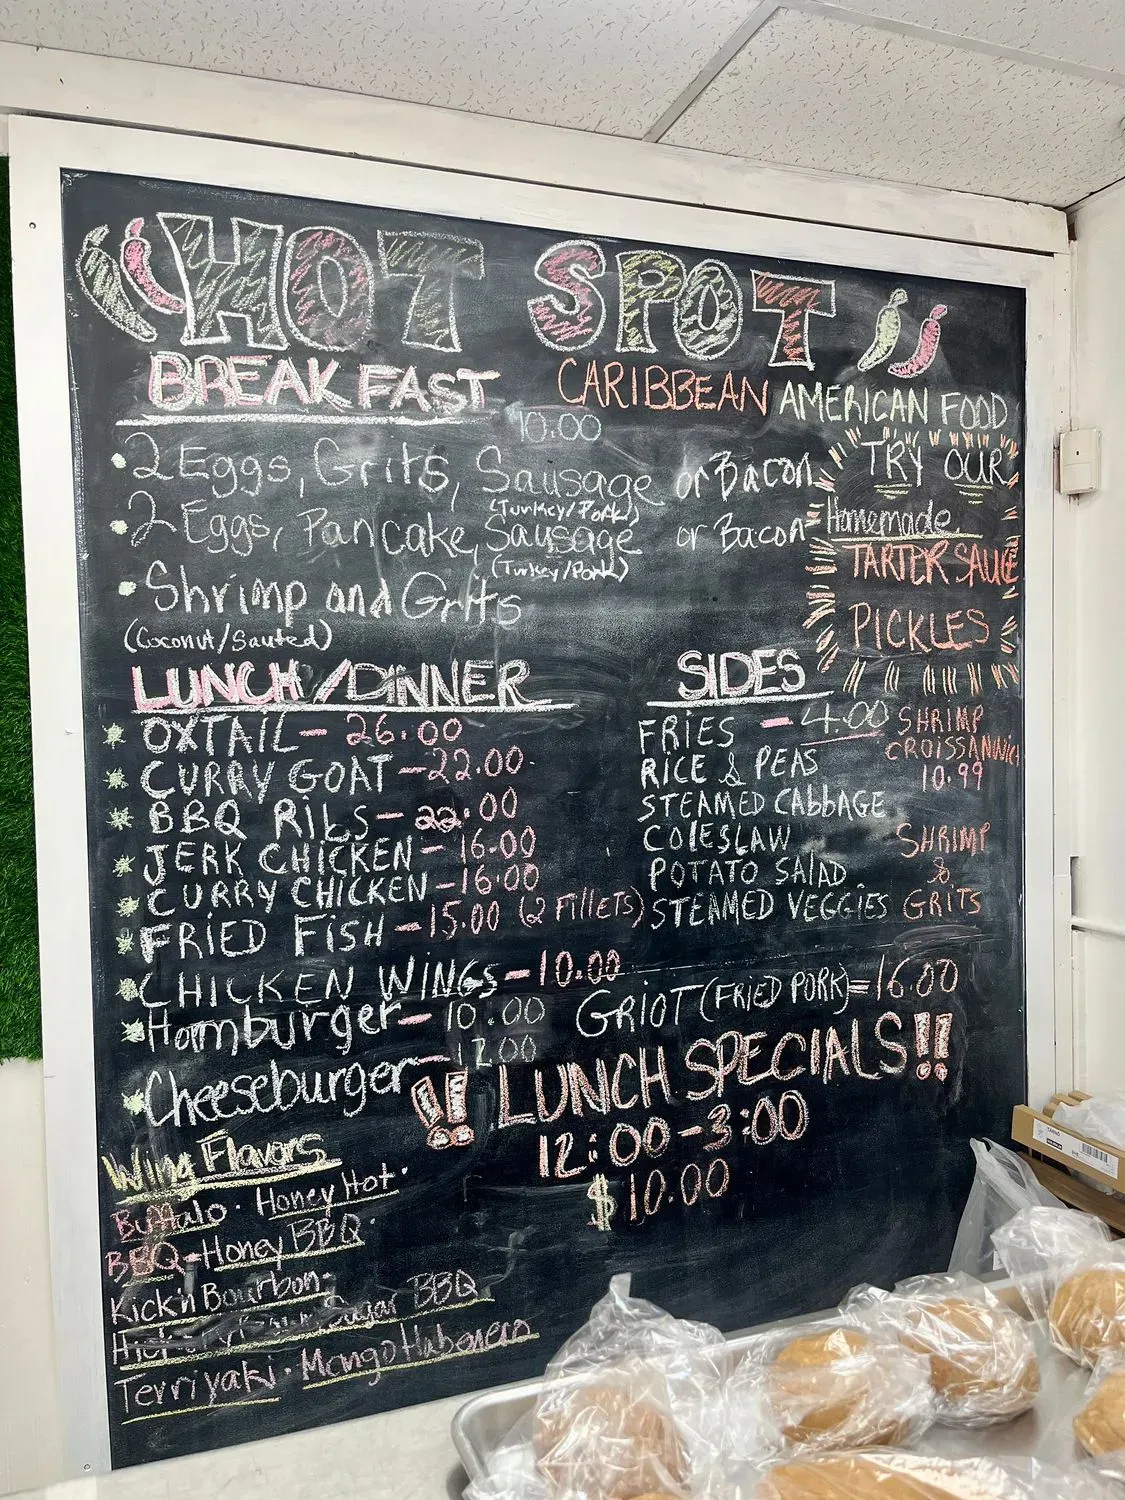 HOT SPOT
BREAKFAST
CARIBBEAN AMERICAN FOOD
10.00
• 2 Eggs, Grits, Sausage or Bacon
(Turkey/Pork)
• 2 Eggs, Pancake, Sausage or Bacon
(Turkey/Pork)
• Shrimp and Grits
(Coconut/Sauted)
TRY OUR
Homemade
TARTER SAUCE
PICKLES
LUNCH/DINNER
OXTAIL - 26.00
CURRY GOAT - 22.00
BBQ RIBS - 22.00
JERK CHICKEN - 16.00
CURRY CHICKEN - 16.00
FRIED FISH - 15.00 (2 Fillets)
CHICKEN WINGS - 10.00
Hamburger - 10.00
Cheeseburger - 12.00
SIDES
FRIES - 4.00
RICE & PEAS
STEAMED CABBAGE
COLESLAW
POTATO SALAD
STEAMED VEGGIES
SHRIMP
CROISSANWICH
10.99
SHRIMP
&
GRITS
GRIOT (FRIED PORK) = 16.00
!! LUNCH SPECIALS !!
12:00 - 3:00
$10.00
Wing Flavors
Buffalo · Honey Hot ·
BBQ - Honey BBQ ·
Kick'n Bourbon ·
Sugar BBQ
Terriyaki · Mango Habenero